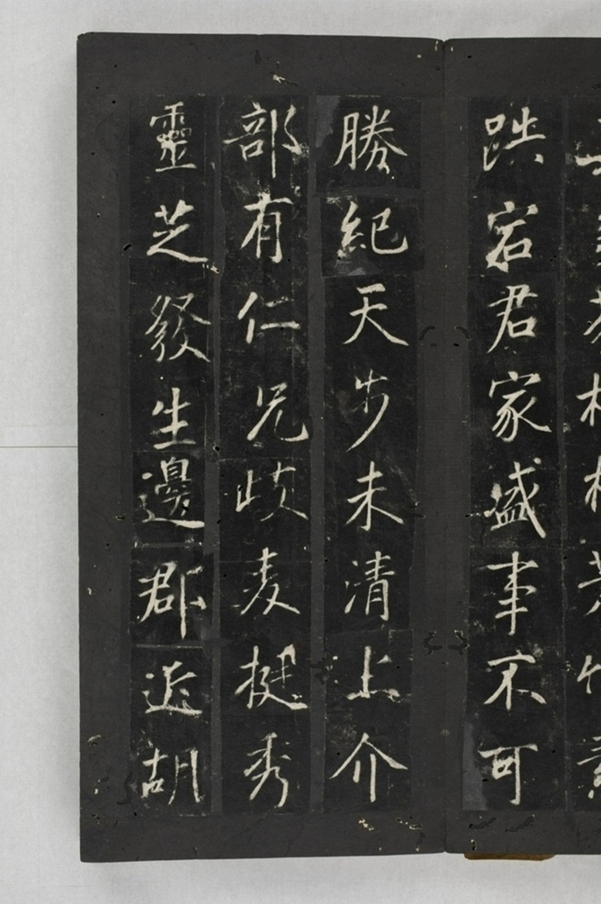 跌宕君家盛事不可
勝紀天步未清上介
部有仁兄歧麦挺秀
靈芝發生邊郡近胡